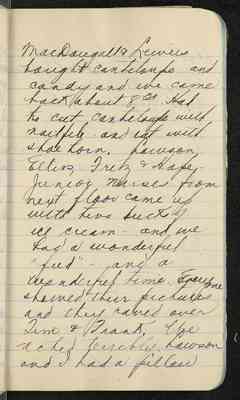 MacDougall & Lewis
bought canteloupe and
candy and we came
back about 8:00. Had
to cut canteloupe with
nailfile and eat with
shoe horn. Lawson,
Fritz & Hope
Junior Nurses from
next floor came up
with two bucks of
ice cream - and we
had a wonderful
"feed" - and a
wonderful time. Everyone
showed their pictures
and they raved over
Tim & Frank.
ached terribly. Lawson
and I had a pillow